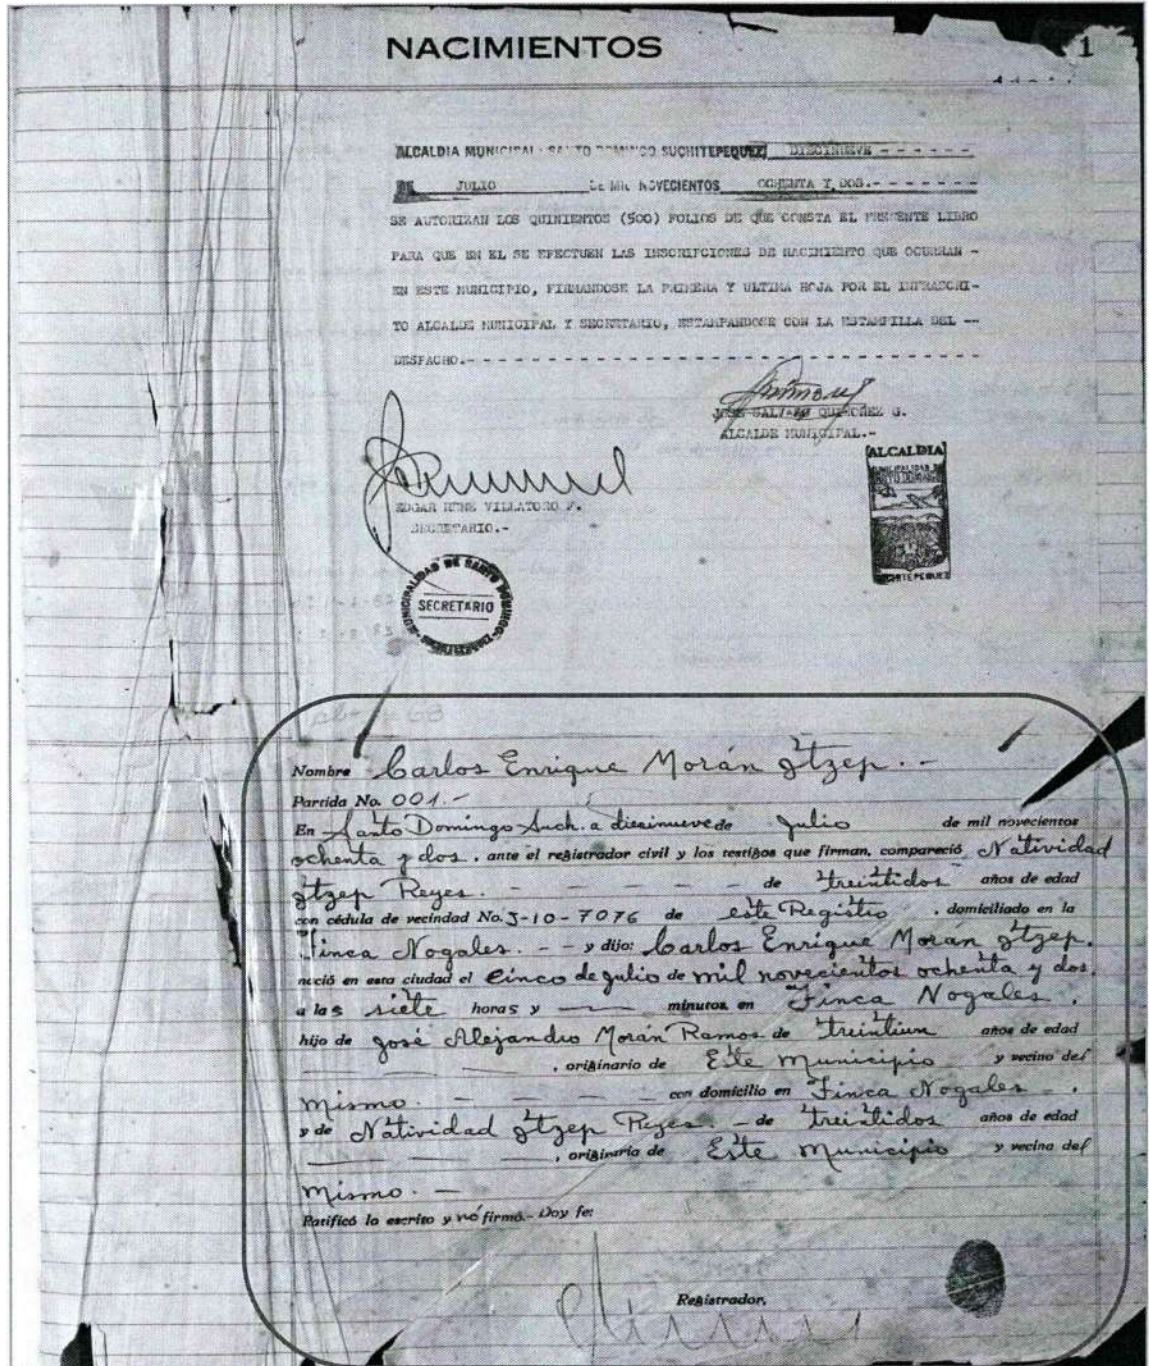 NACIMIENTOS
1
ALCALDIA MUNICIPAL: SANTO DOMINGO SUCHITEPEQUEZ DIECINUEVE - - - - - -
DE JULIO DE MIL NOVECIENTOS OCHENTA Y DOS.- - - - - - - -
SE AUTORIZAN LOS QUINIENTOS (500) FOLIOS DE QUE CONSTA EL PRESENTE LIBRO
PARA QUE EN EL SE EFECTUEN LAS INSCRIPCIONES DE NACIMIENTO QUE OCURRAN -
EN ESTE MUNICIPIO, FIRMANDOSE LA PRIMERA Y ULTIMA HOJA POR EL INFRASCRI-
TO ALCALDE MUNICIPAL Y SECRETARIO, ESTAMPANDOSE CON LA ESTAMPILLA DEL --
DESPACHO.- - - - - - - - - - - - - - - - - - - - - - - - - - - - - -
JOSE GALVEZ QUIÑONEZ G.
ALCALDE MUNICIPAL.-
ALCALDIA
MUNICIPALIDAD DE
SANTO DOMINGO
SUCHITEPEQUEZ
EDGAR RENE VILLATORO F.
SECRETARIO.-
MUNICIPALIDAD DE SANTO DOMINGO
SECRETARIO
Nombre Carlos Enrique Morán Itzep. -
Partida No. 001.-
En Santo Domingo Such. a diecinueve de Julio de mil novecientos
ochenta y dos, ante el registrador civil y los testigos que firman, compareció Natividad
Itzep Reyes. - - - - - - de treintidos años de edad
con cédula de vecindad No. J-10-7076 de este Registro, domiciliado en la
Finca Nogales. - - y dijo: Carlos Enrique Morán Itzep.
nació en esta ciudad el cinco de julio de mil novecientos ochenta y dos.
a las siete horas y —— minutos en Finca Nogales.
hijo de José Alejandro Morán Ramos de treintiun años de edad
—— ——, originario de Este Municipio y vecino del
Mismo. - - - - - con domicilio en Finca Nogales.
y de Natividad Itzep Reyes. - de treintidos años de edad
—— ——, originaria de Este Municipio y vecina del
Mismo. -
Ratificó lo escrito y no firmó.- Doy fe:
Registrador,